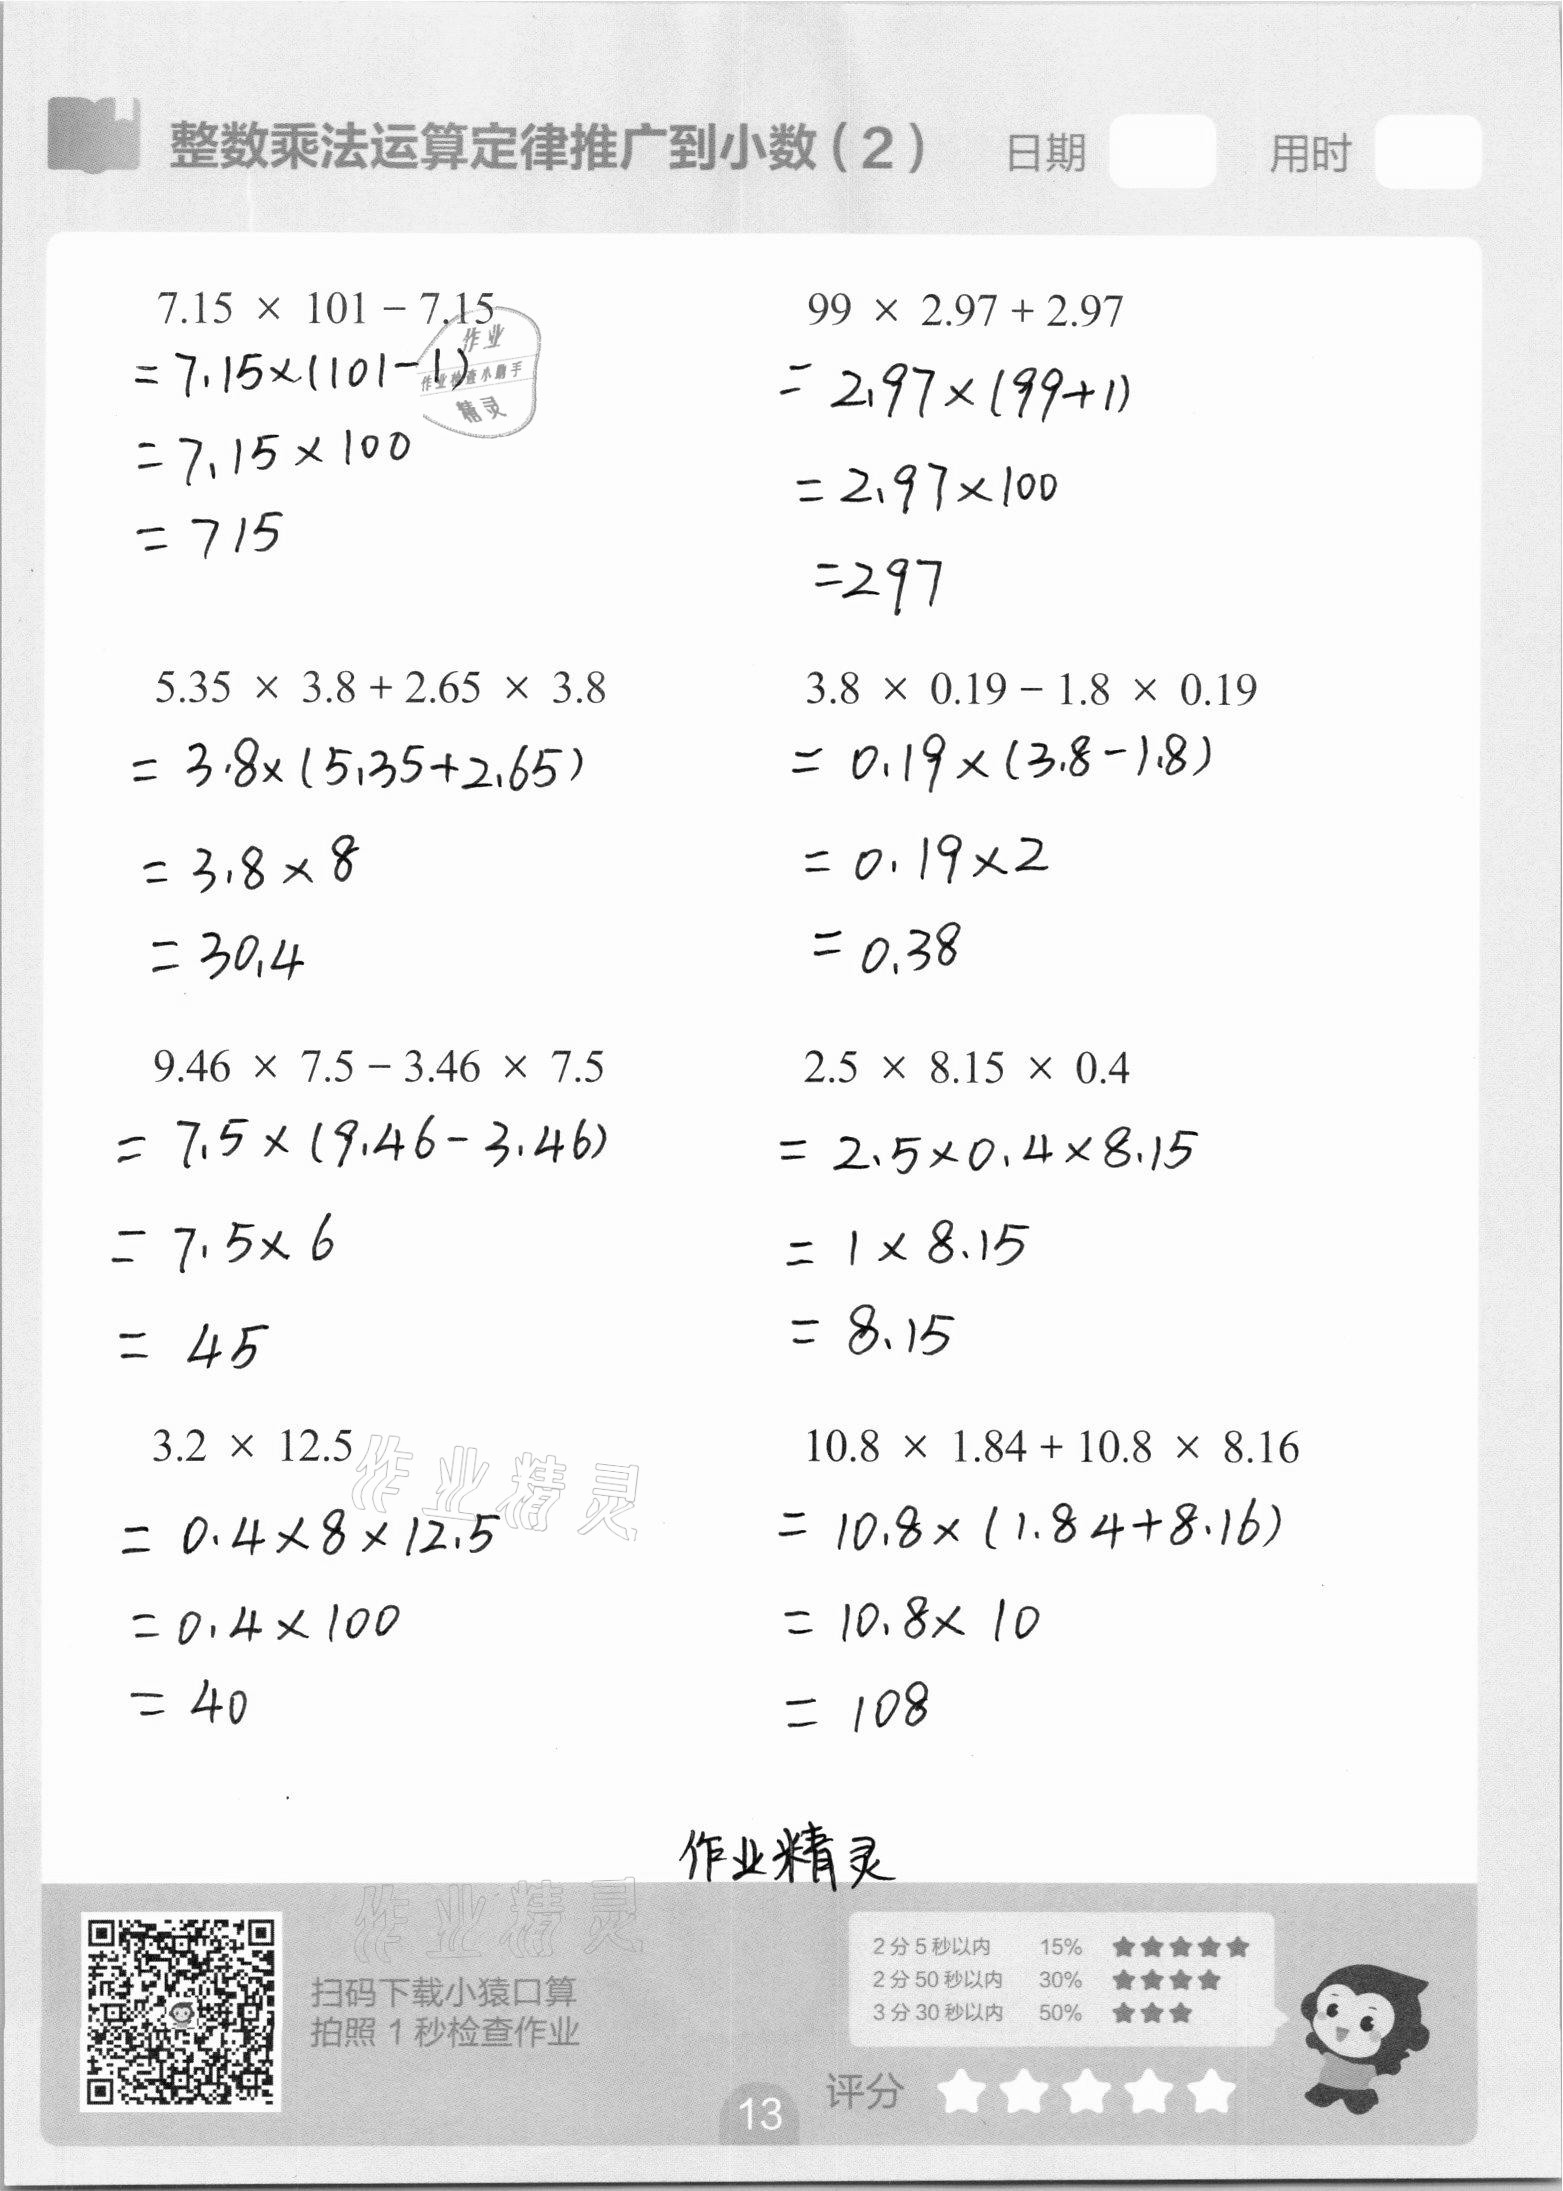 整数乘法运算定律推广到小数(2) 日期 用时
7.15 × 101 − 7.15
= 7.15×(101−1)
= 7.15×100
= 715
99 × 2.97 + 2.97
= 2.97×(99+1)
= 2.97×100
=297
作业
作业检查小助手
精灵
5.35 × 3.8 + 2.65 × 3.8
= 3.8×(5.35+2.65)
= 3.8×8
= 30.4
3.8 × 0.19 − 1.8 × 0.19
= 0.19×(3.8−1.8)
= 0.19×2
= 0.38
9.46 × 7.5 − 3.46 × 7.5
= 7.5×(9.46−3.46)
= 7.5×6
= 45
2.5 × 8.15 × 0.4
= 2.5×0.4×8.15
= 1×8.15
= 8.15
3.2 × 12.5
= 0.4×8×12.5
= 0.4×100
= 40
作业精灵
10.8 × 1.84 + 10.8 × 8.16
= 10.8×(1.84+8.16)
= 10.8×10
= 108
作业精灵
作业精灵
扫码下载小猿口算
拍照 1 秒检查作业
2 分 5 秒以内 15% ★★★★★
2 分 50 秒以内 30% ★★★★
3 分 30 秒以内 50% ★★★
评分
13